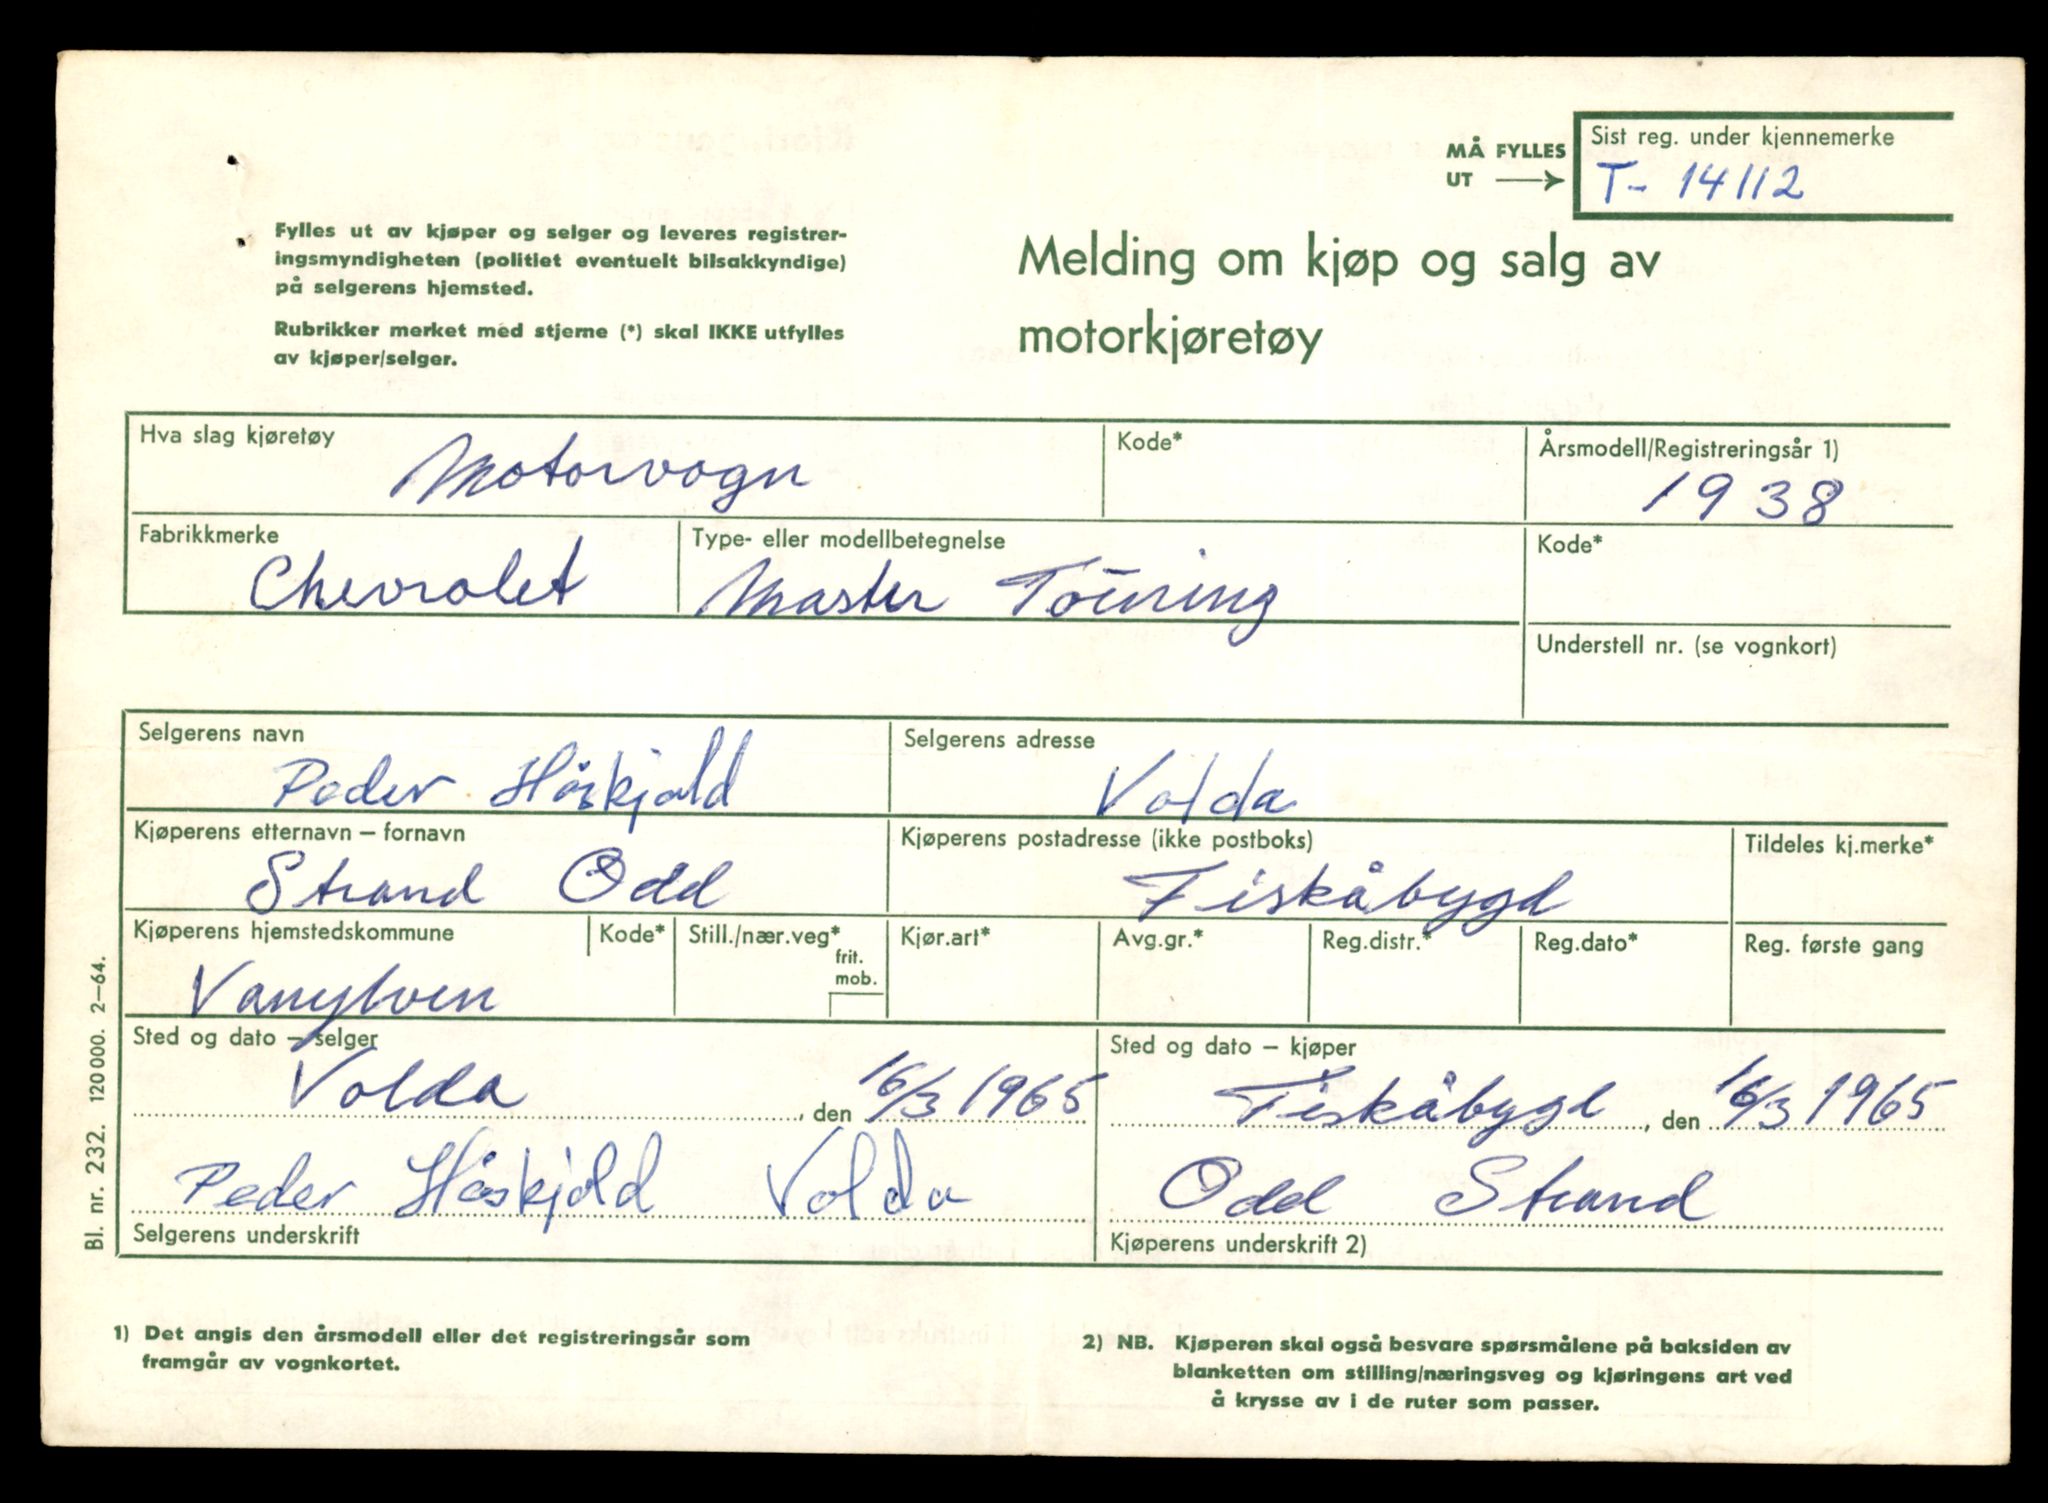 MÅ FYLLES
UT
Sist reg. under kjennemerke
T- 14112
Fylles ut av kjøper og selger og leveres registrer-
ingsmyndigheten (politiet eventuelt bilsakkyndige)
på selgerens hjemsted.
Rubrikker merket med stjerne (*) skal IKKE utfylles
av kjøper/selger.
Melding om kjøp og salg av
motorkjøretøy
Hva slag kjøretøy
Motorvogn
Kode*
Årsmodell/Registreringsår 1)
1938
Fabrikkmerke
Chevrolet
Type- eller modellbetegnelse
Master Touring
Kode*
Understell nr. (se vognkort)
Selgerens navn
Peder Håskjold
Selgerens adresse
Volda
Kjøperens etternavn – fornavn
Strand Odd
Kjøperens postadresse (ikke postboks)
Fiskåbygd
Tildeles kj.merke*
Kjøperens hjemstedskommune
Vanylven
Kode*
Still./nær.veg*
frit.
mob.
Kjør.art*
Avg.gr.*
Reg.distr.*
Reg.dato*
Reg. første gang
Sted og dato – selger
Volda, den 16/3 1965
Peder Håskjold Volda
Selgerens underskrift
Sted og dato – kjøper
Fiskåbygd, den 16/3 1965
Odd Strand
Kjøperens underskrift 2)
Bl. nr. 232. 120 000. 2–64.
1) Det angis den årsmodell eller det registreringsår som
framgår av vognkortet.
2) NB. Kjøperen skal også besvare spørsmålene på baksiden av
blanketten om stilling/næringsveg og kjøringens art ved
å krysse av i de ruter som passer.